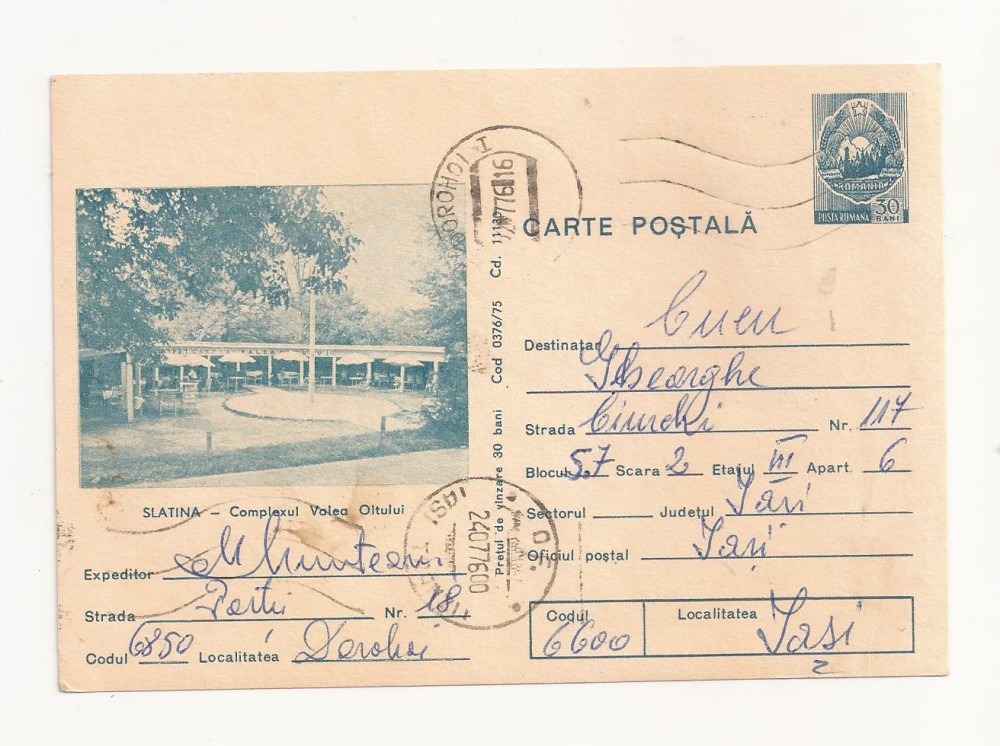 DOROHOI I
CARTE POȘTALĂ
ROMANIA
POSTA ROMANA 30 BANI
Destinatar Cucu
Gheorghe
Strada Ciurchi Nr. 117
Blocul 57 Scara 2 Etajul III Apart. 6
Sectorul Județul Iași
Oficiul poștal Iași
Codul 6600 Localitatea Iași
Prețul de vînzare 30 bani Cod 0376/75 Cd. 11130
SLATINA – Complexul Valea Oltului
IAȘI
24077600
Expeditor M Munteanu
Strada Nr. 18
Codul 6850 Localitatea Dorohoi